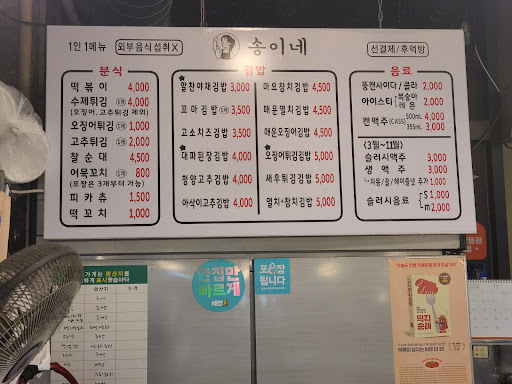 1인 1메뉴
외부음식섭취X
송이네
선결제/후먹방
분식
떡볶이 4,000
수제튀김 4,000
(오징어, 고추튀김 제외)
오징어튀김 1,000
고추튀김 2,000
찰순대 4,500
어묵꼬치 800
(포장은 3개부터 가능)
피카츄 1,500
떡꼬치 1,000
김밥
알찬야채김밥 3,000
꼬마김밥 3,500
고소치즈김밥 3,500
대파된장김밥 4,000
청양고추김밥 4,000
아삭이고추김밥 4,000
마요참치김밥 4,500
매운멸치김밥 4,500
매운오징어김밥 4,500
오징어튀김김밥 5,000
새우튀김김밥 5,000
멸치+참치김밥 5,000
음료
뚱캔사이다/콜라 2,000
아이스티 복숭아 레몬 2,000
캔맥주(CASS) 500ml. 4,000
355ml. 3,000
(3월~11월)
슬러시맥주 3,000
생맥주 3,000
슬러시음료 s 1,000
m 2,000
한집만
빠르게
배민
포장
됩니다
떡지순례